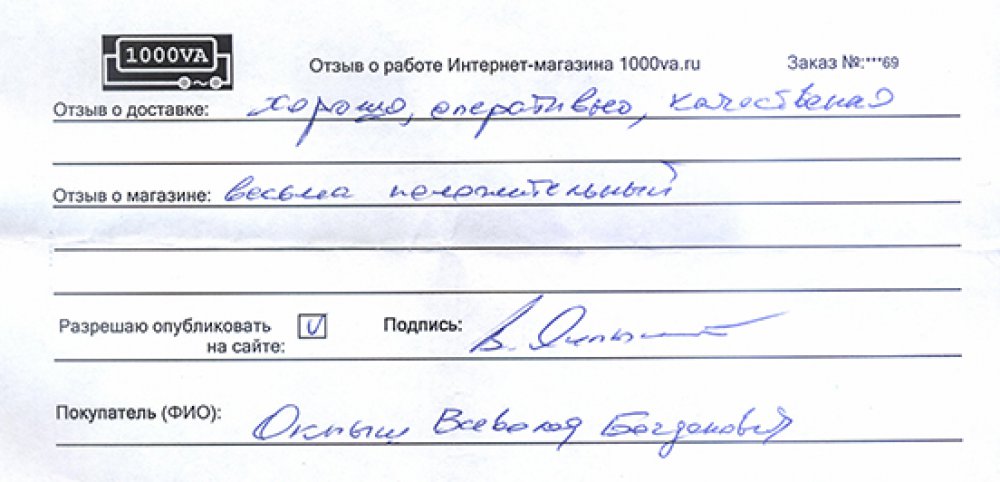 1000VA
Отзыв о работе Интернет-магазина 1000va.ru Заказ №:***69
Отзыв о доставке: хорошо, оперативно, качественая
Отзыв о магазине: весьма положительный
Разрешаю опубликовать на сайте: Подпись: В.
Покупатель (ФИО): Всеволод Богданович